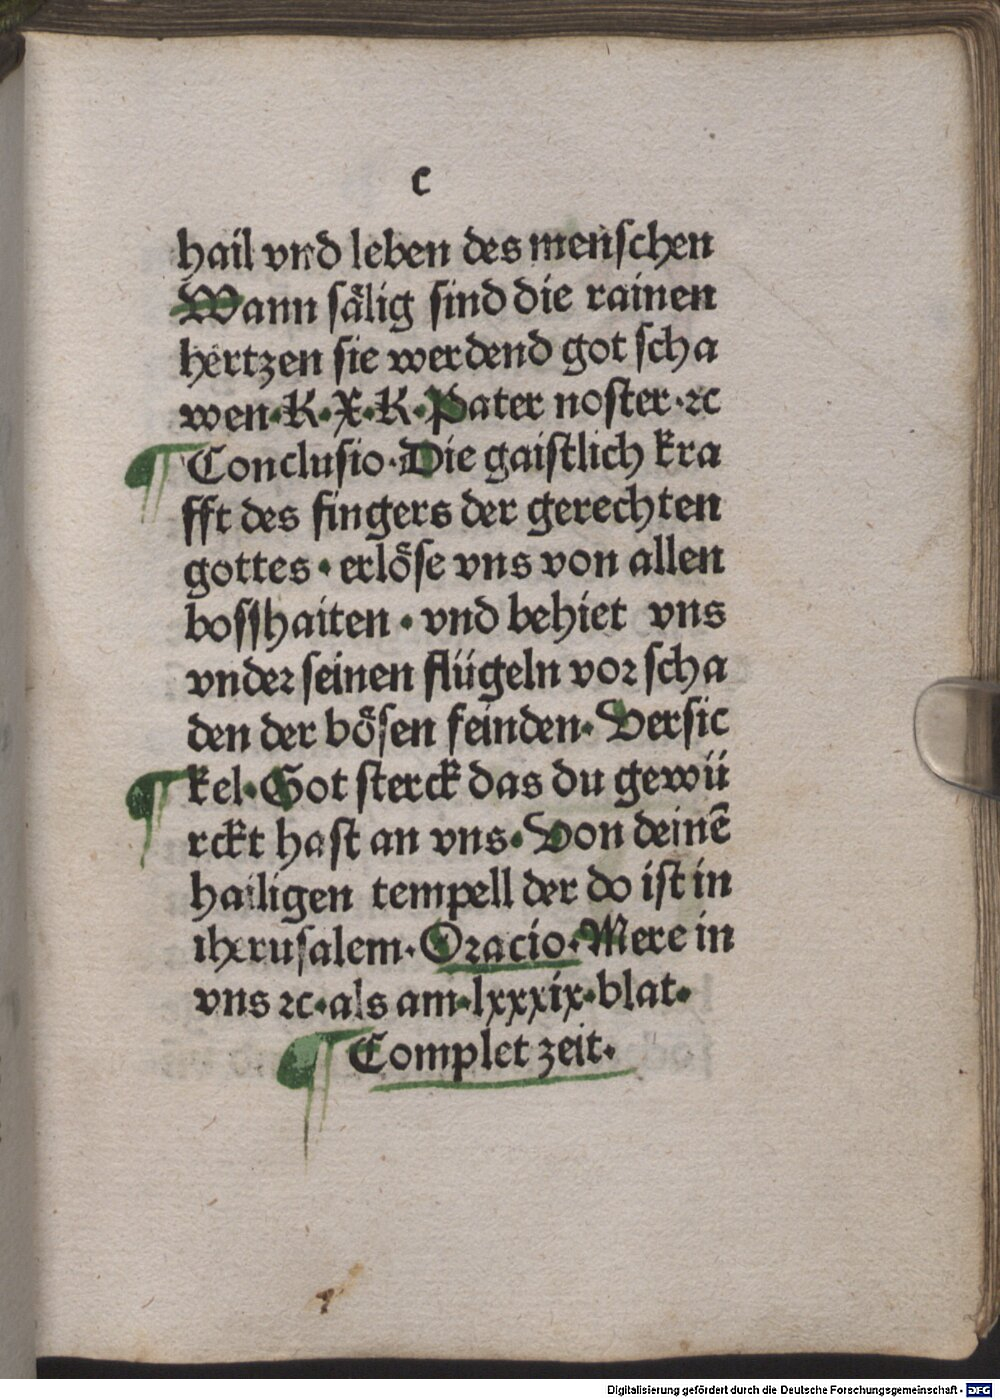 c
hail vnd leben des menschen
Wann sälig sind die rainen
hertzen sie werdend got scha
wen·K·X·K·Pater noster·ꝛc
Conclusio·Die gaistlich kra
fft des fingers der gerechten
gottes·erlöse vns von allen
bosshaiten·vnd behiet vns
vnder seinen flügeln vor scha
den der bösen feinden·Versic
kel·Got sterck das du gewü
rckt hast an vns·Von deinē
hailigen tempell der do ist in
iherusalem·Oracio·Mere in
vns ꝛc·als am·lxxxix·blat·
Complet zeit·
Digitalisierung gefördert durch die Deutsche Forschungsgemeinschaft - DFG